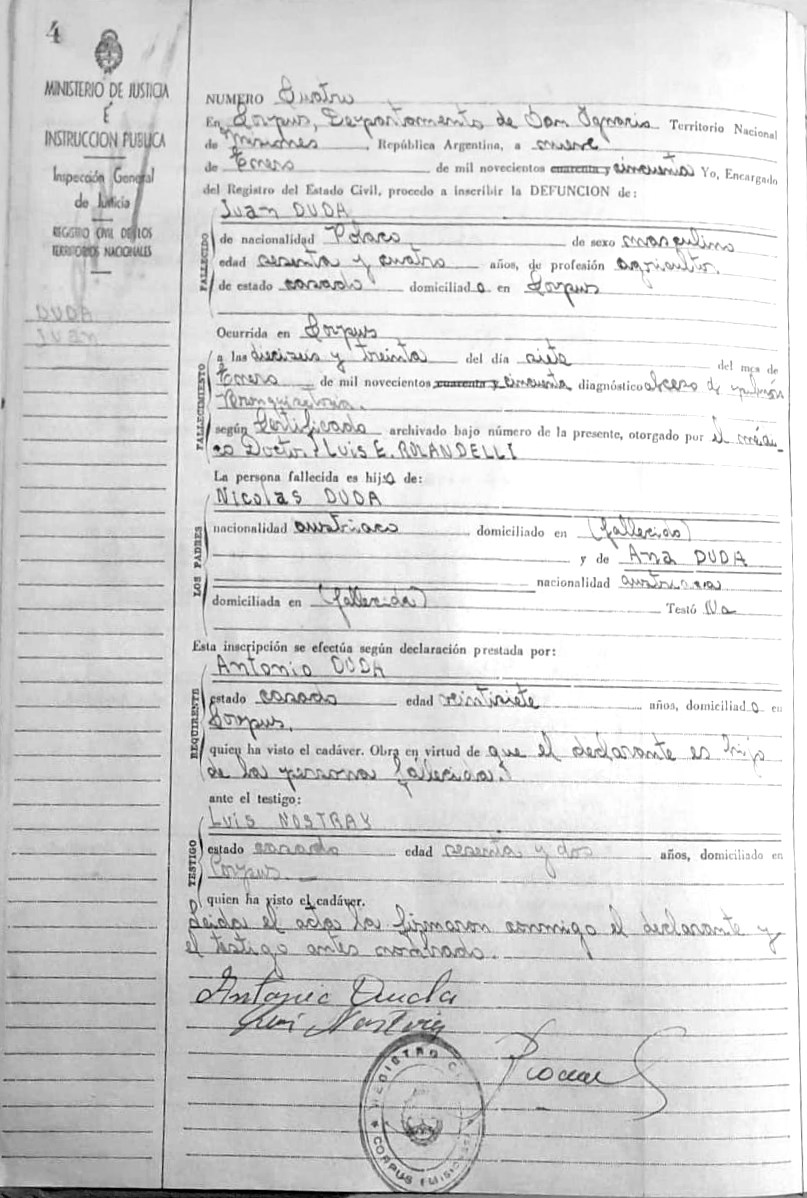 4
MINISTERIO DE JUSTICIA
É
INSTRUCCION PUBLICA
Inspección General
de Justicia
REGISTRO CIVIL DE LOS
TERRITORIOS NACIONALES
DUDA
Juan
NUMERO Cuatro
En Corpus, Departamento de San Ignacio Territorio Nacional
de Misiones, República Argentina, a nueve
de Enero de mil novecientos cuarenta y cincuenta Yo, Encargado
del Registro del Estado Civil, procedo a inscribir la DEFUNCION de:
Juan DUDA
FALLECIDO
de nacionalidad Polaco de sexo masculino
edad sesenta y cuatro años, de profesión agricultor
de estado casado domiciliado en Corpus
Ocurrida en Corpus
FALLECIMIENTO
a las dieciseis y treinta del día siete del mes de
Enero de mil novecientos cuarenta y cincuenta diagnóstico absceso de pulmón
según Certificado archivado bajo número de la presente, otorgado por el médi-
co Doctor LUIS E. ROLANDELLI
La persona fallecida es hijo de:
Nicolas DUDA
LOS PADRES
nacionalidad austriaco domiciliado en (fallecido)
y de Ana DUDA
nacionalidad austriaca
domiciliada en (fallecida) Testó No
Esta inscripción se efectúa según declaración prestada por:
Antonio DUDA
REQUIRENTE
estado casado edad veintisiete años, domiciliado en
Corpus.
quien ha visto el cadáver. Obra en virtud de que el declarante es hijo
de la persona fallecida.
ante el testigo:
LUIS NOSTRAY
TESTIGO
estado casado edad sesenta y dos años, domiciliado en
Corpus.
quien ha visto el cadáver.
Leida el acta la firmaron conmigo el declarante y
el testigo antes nombrado.
Antonio Duda
REGISTRO CIVIL
CORPUS (MISIONES)